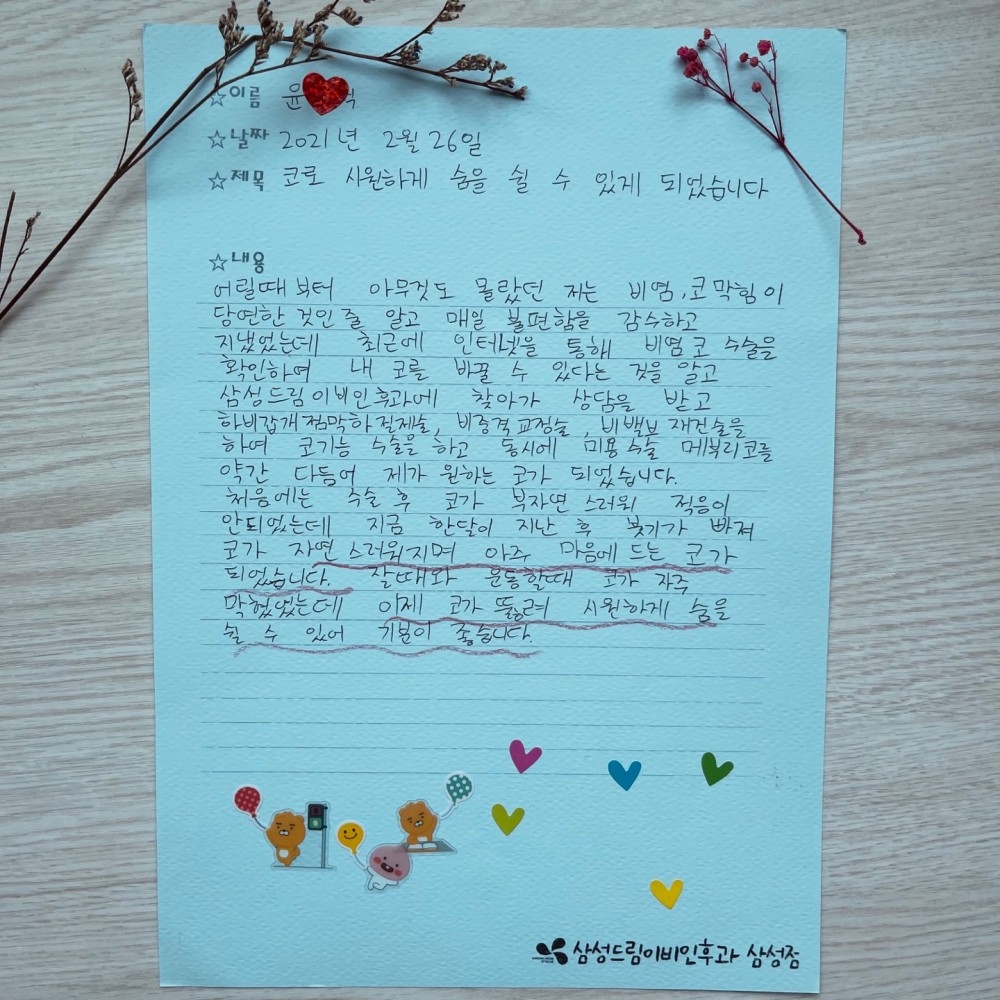 ☆이름 윤
☆날짜 2021년 2월 26일
☆제목 코로 시원하게 숨을 쉴 수 있게 되었습니다
☆내용
어릴때부터 아무것도 몰랐던 저는 비염, 코막힘이
당연한 것인 줄 알고 매일 불편함을 감수하고
지냈었는데 최근에 인터넷을 통해 비염 코 수술을
확인하여 내 코를 바꿀 수 있다는 것을 알고
삼성드림이비인후과에 찾아가 상담을 받고
하비갑개점막하절제술, 비중격교정술, 비백브 재건술을
하여 코기능 수술을 하고 동시에 미용수술 매부리코를
약간 다듬어 제가 원하는 코가 되었습니다.
처음에는 수술 후 코가 부자연스러워 적응이
안되었는데 지금 한달이 지난 후 붓기가 빠져
코가 자연스러워지며 아주 마음에 드는 코가
되었습니다. 잘때와 운동할때 코가 자주
막혔었는데 이제 코가 뚫려 시원하게 숨을
쉴 수 있어 기분이 좋습니다.
삼성드림이비인후과 삼성점